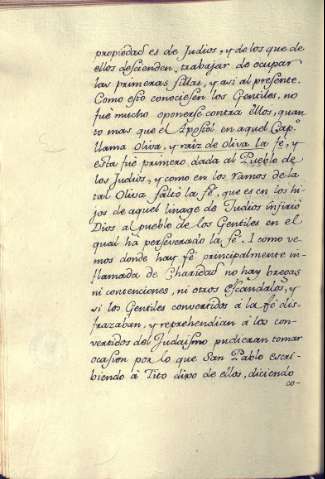 propiedad es de Judios, y de los que de
ellos descienden, trabajar de ocupar
las primeras sillas, y asi al presente.
Como esto conociesen los Gentiles, no
fuè mucho oponerse contra ellos, quan
to mas que el Apostol en aquel Cap.
llama Oliva, y raiz de Oliva la fe, y
esta fuè primero dada al Pueblo de
los Judios, y como en los ramos de la
tal Oliva faltò la fè, que es en los hi-
jos de aquel linage de Judios injiriò
Dios al pueblo de los Gentiles en el
qual hà perseverado la fè. I como ve-
mos donde hay fè principalmente in-
flamada de Charidad no hay bregas
ni contenciones, ni otros escandalos, y
si los Gentiles convertidos à la fè dis-
frazaban, y reprehendian à los con-
vertidos del Judaismo pudieran tomar
ocasion por lo que San Pablo escri-
biendo à Tito dixo de ellos, diciendo
co-